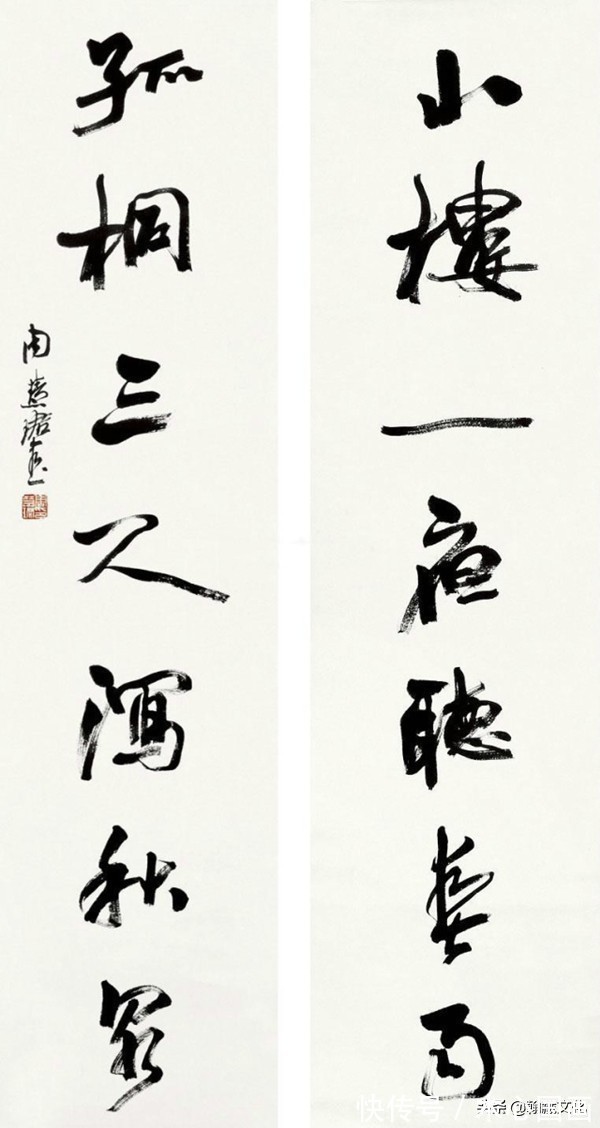 小樓一夜聽春雨
孤桐三尺瀉秋泉
周慧珺書
快传号/